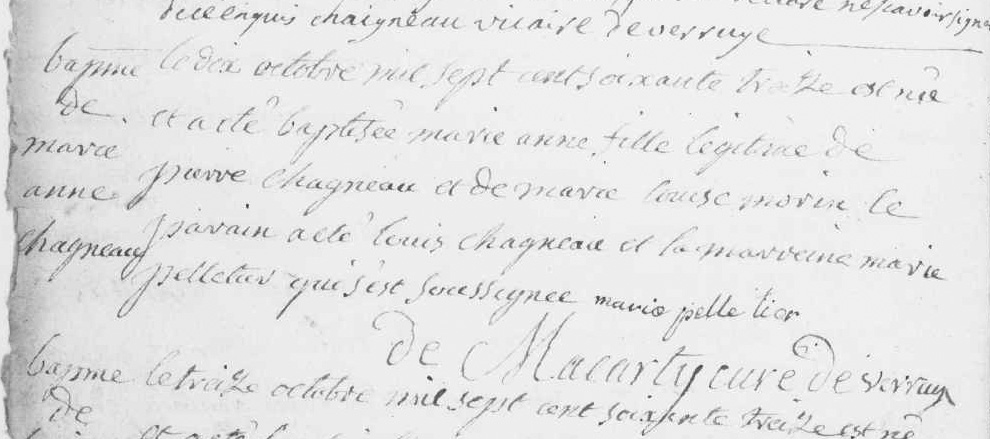 ne scavoir signer
de ce enquis chaigneau vicaire de verruye
bapme le dix octobre mil sept cent soixante treize est née
de et a eté baptisée marie anne fille legitime de
marie pierre chagneau et de marie louise morin le
anne parain a eté louis chagneau et la marreine marie
chagneau pelletier qui s'est soussignee marie pelletier
de Macarty curé de verruye
bapme le treize octobre mil sept cent soixante treize est né
de et a eté